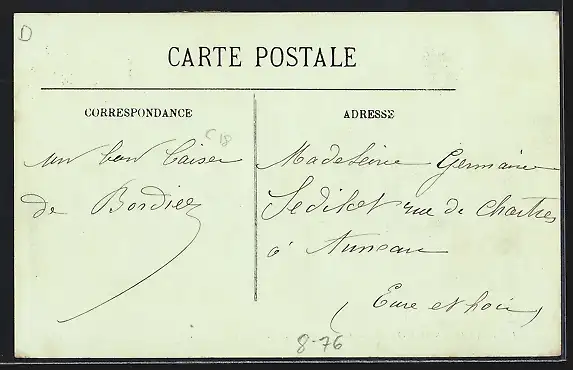 D
CARTE POSTALE
CORRESPONDANCE
C 18
un bon baiser
de Bordiez
ADRESSE
Madeleine Germaine
Sedillot rue de Chartres
à Auneau
(Eure et Loir)
8-76